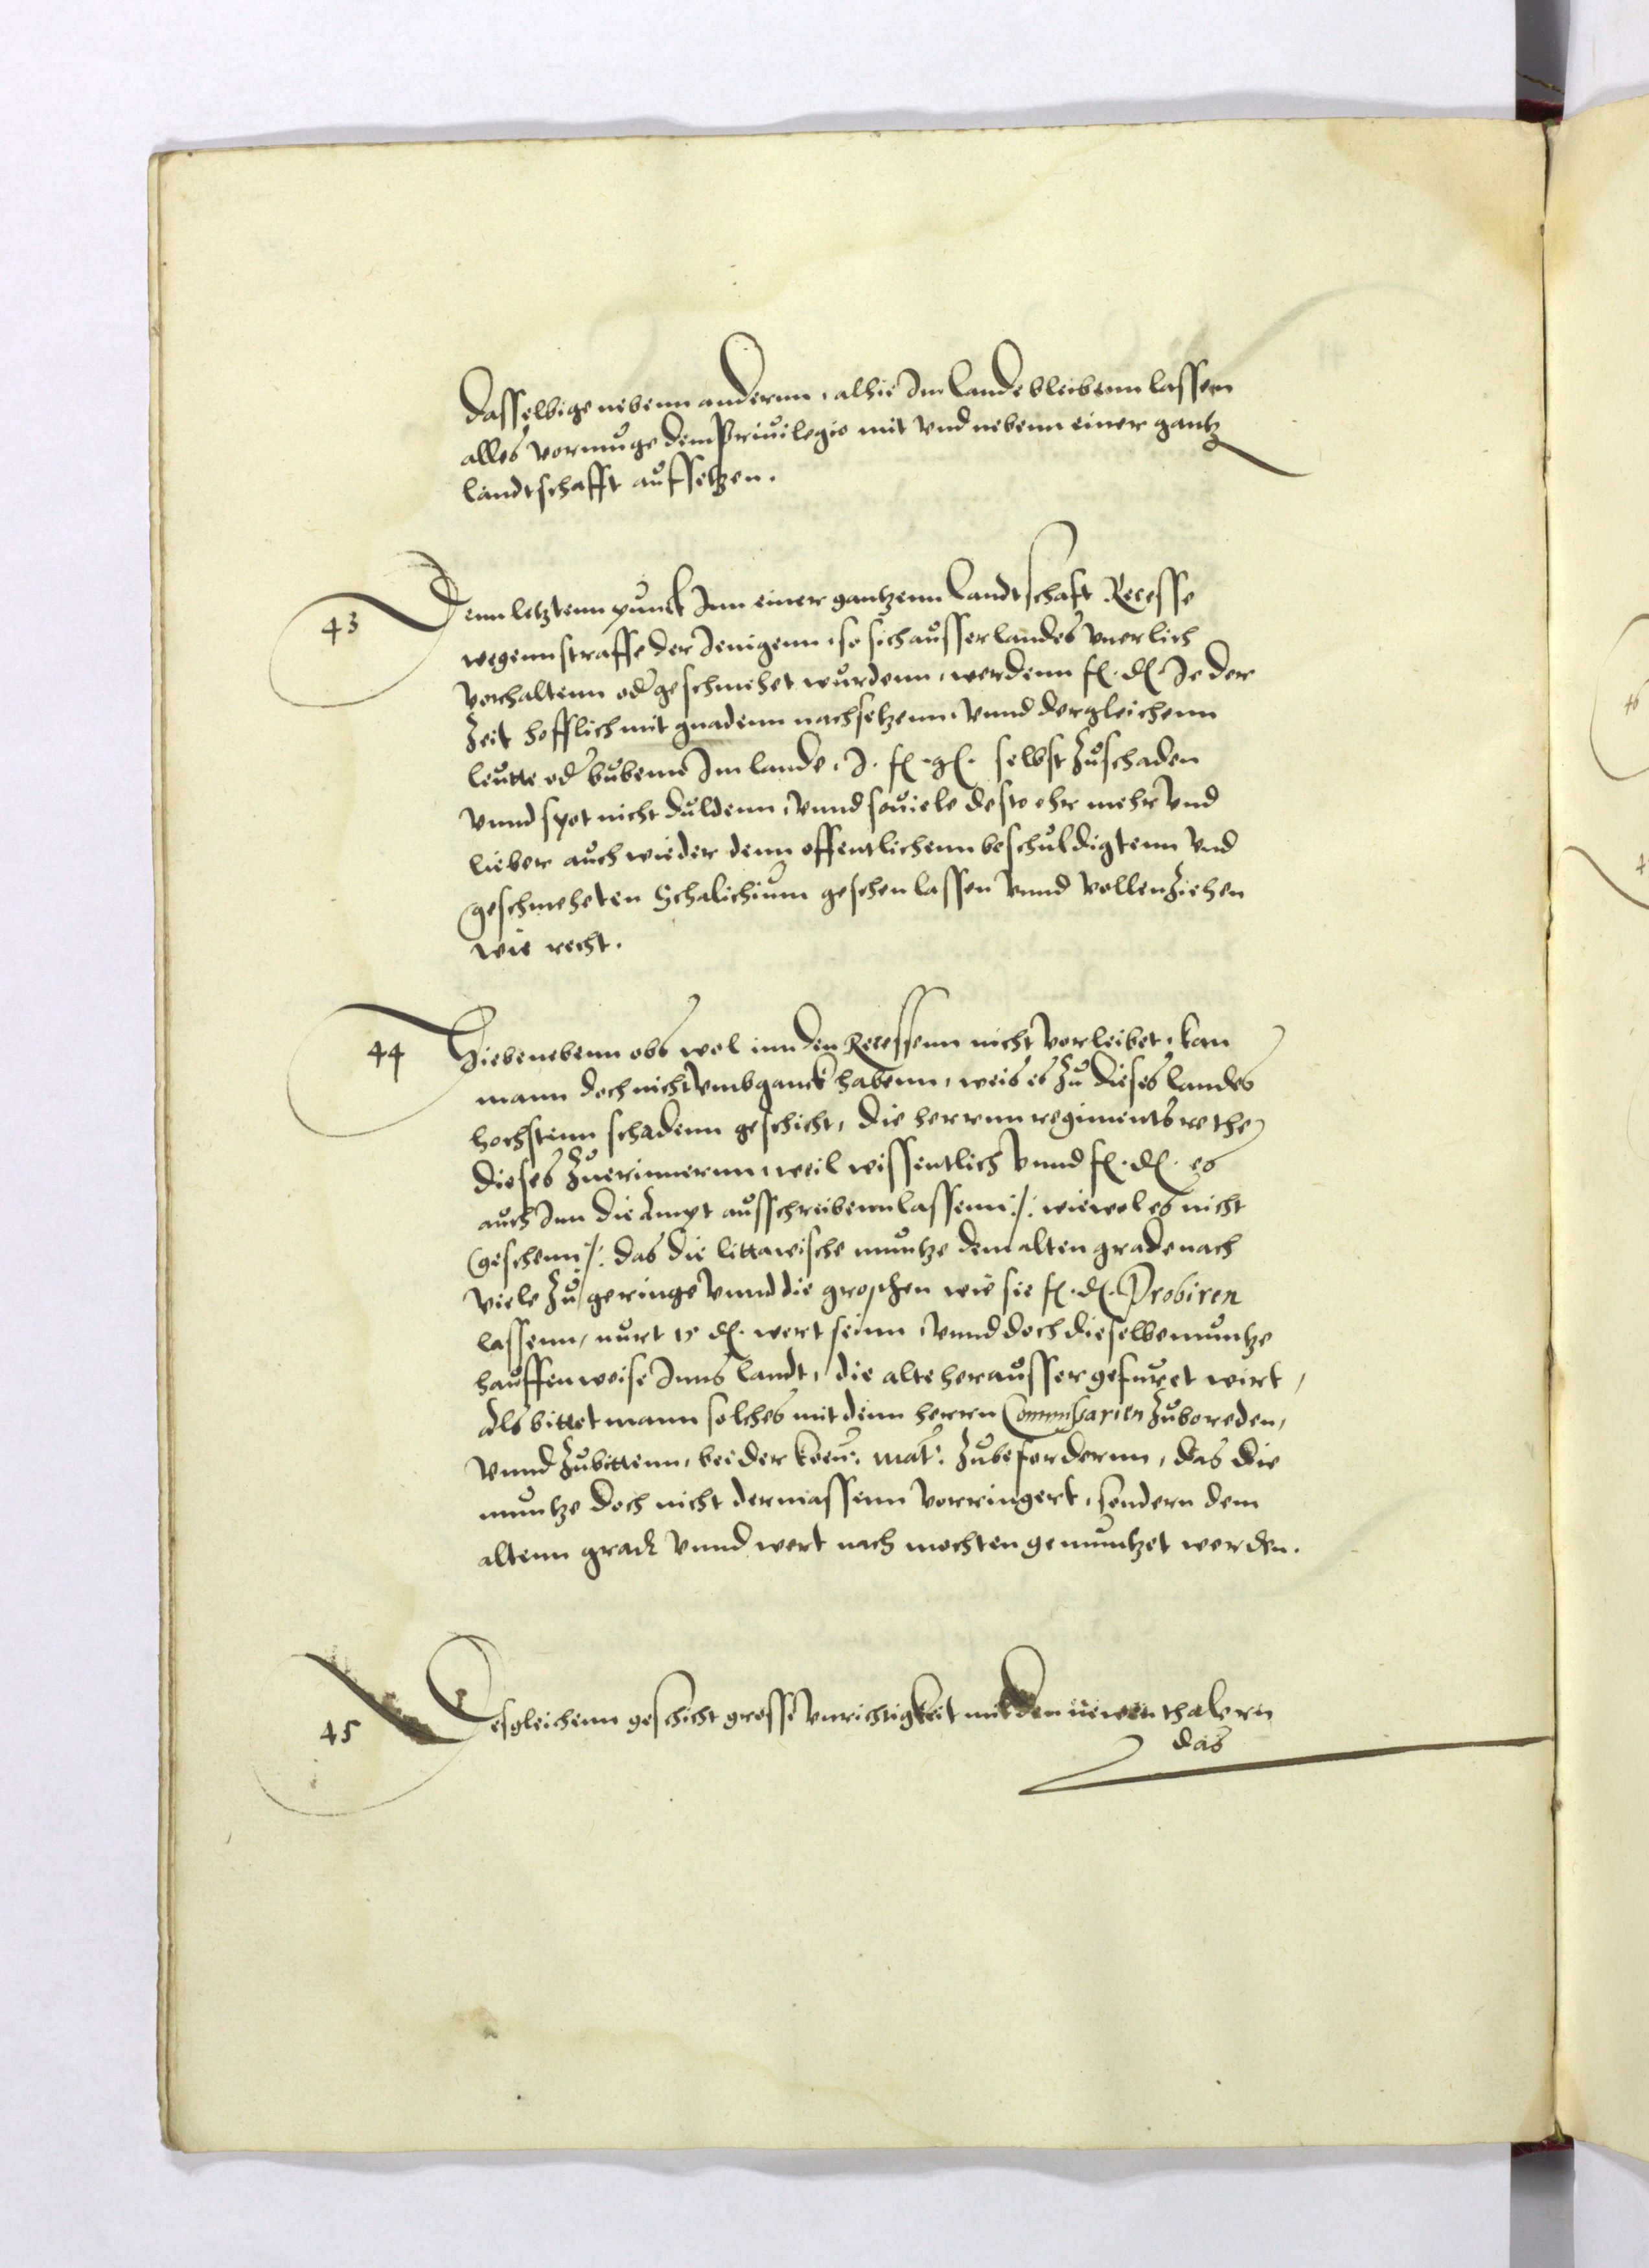 dasselbige nebenn anderun, alhie Im Lande bleibenn lassen
alles vermuge dem Priuilegio mit vnd nebenn einer gantz
landtschafft auffsetzen.
43 Denn letztenn punct Inn einer gantzenn Landtschaft Recesse
wegenn straffe der Jenigenn, so sich ausser landes vnerlich
vorhaltenn od geschmehet wurdenn, werdenn f. d. Je der
Zeit hofflich mit gnadenn nachsetzenn, vnnd dergleichenn
leutte od bubenn Im lande, J. f. g. selbst zuschaden
vnnd spot nicht duldenn, vnnd souiele desto ehr mehr vnd
lieber auch wieder denn offentlichenn beschuldigtenn vnd
geschmeheten Schalichium geschen lassen vnnd vollenziehen
wie recht.
44 Hiebenebenn obs wol inn den Recessenn nicht vorleibet, kan
mann doch nicht vmbganck habenn, weis es zu dieses landes
hochstenn schadenn geschicht, die herrnn regimentsrethe
dieses zuerinnernn, weil wissentlich vnnd f. d. es
auch Inn die Ampt ausschreibenn lassenn /: wiewol es nicht
geschenn :/ das die littawische muntze dem alten grade nach
viele zu geringe vnnd die groschen wie sie f. d. Probiren
lassenn, nurt 15 d. wert seinn, vnnd doch dieselbe muntze
hauffenweise Inns landt, die alte herausser gefuret wirt,
Als bittet mann solches mit denn herrn Commissarien zubereden,
vnnd zubittenn, bei der koen: mat: zubefordernn, das die
muntze doch nicht dermassenn vorringert, sondern dem
altenn grad vnnd wert nach mochten gemuntzet werden.
45 Desgleichenn geschicht grosse vnrichtigkeit mit den newen thalern
das